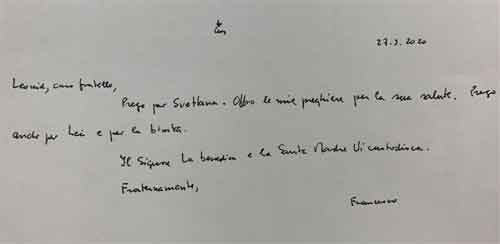 27.3.2020
caro fratello,
Prego per Svetlana. Offro le mie preghiere per la sua salute. Prego
anche per Lei e per la bimba.
Il Signore La benedica e la Santa Madre Vi custodisca.
Fraternamente,
Francesco